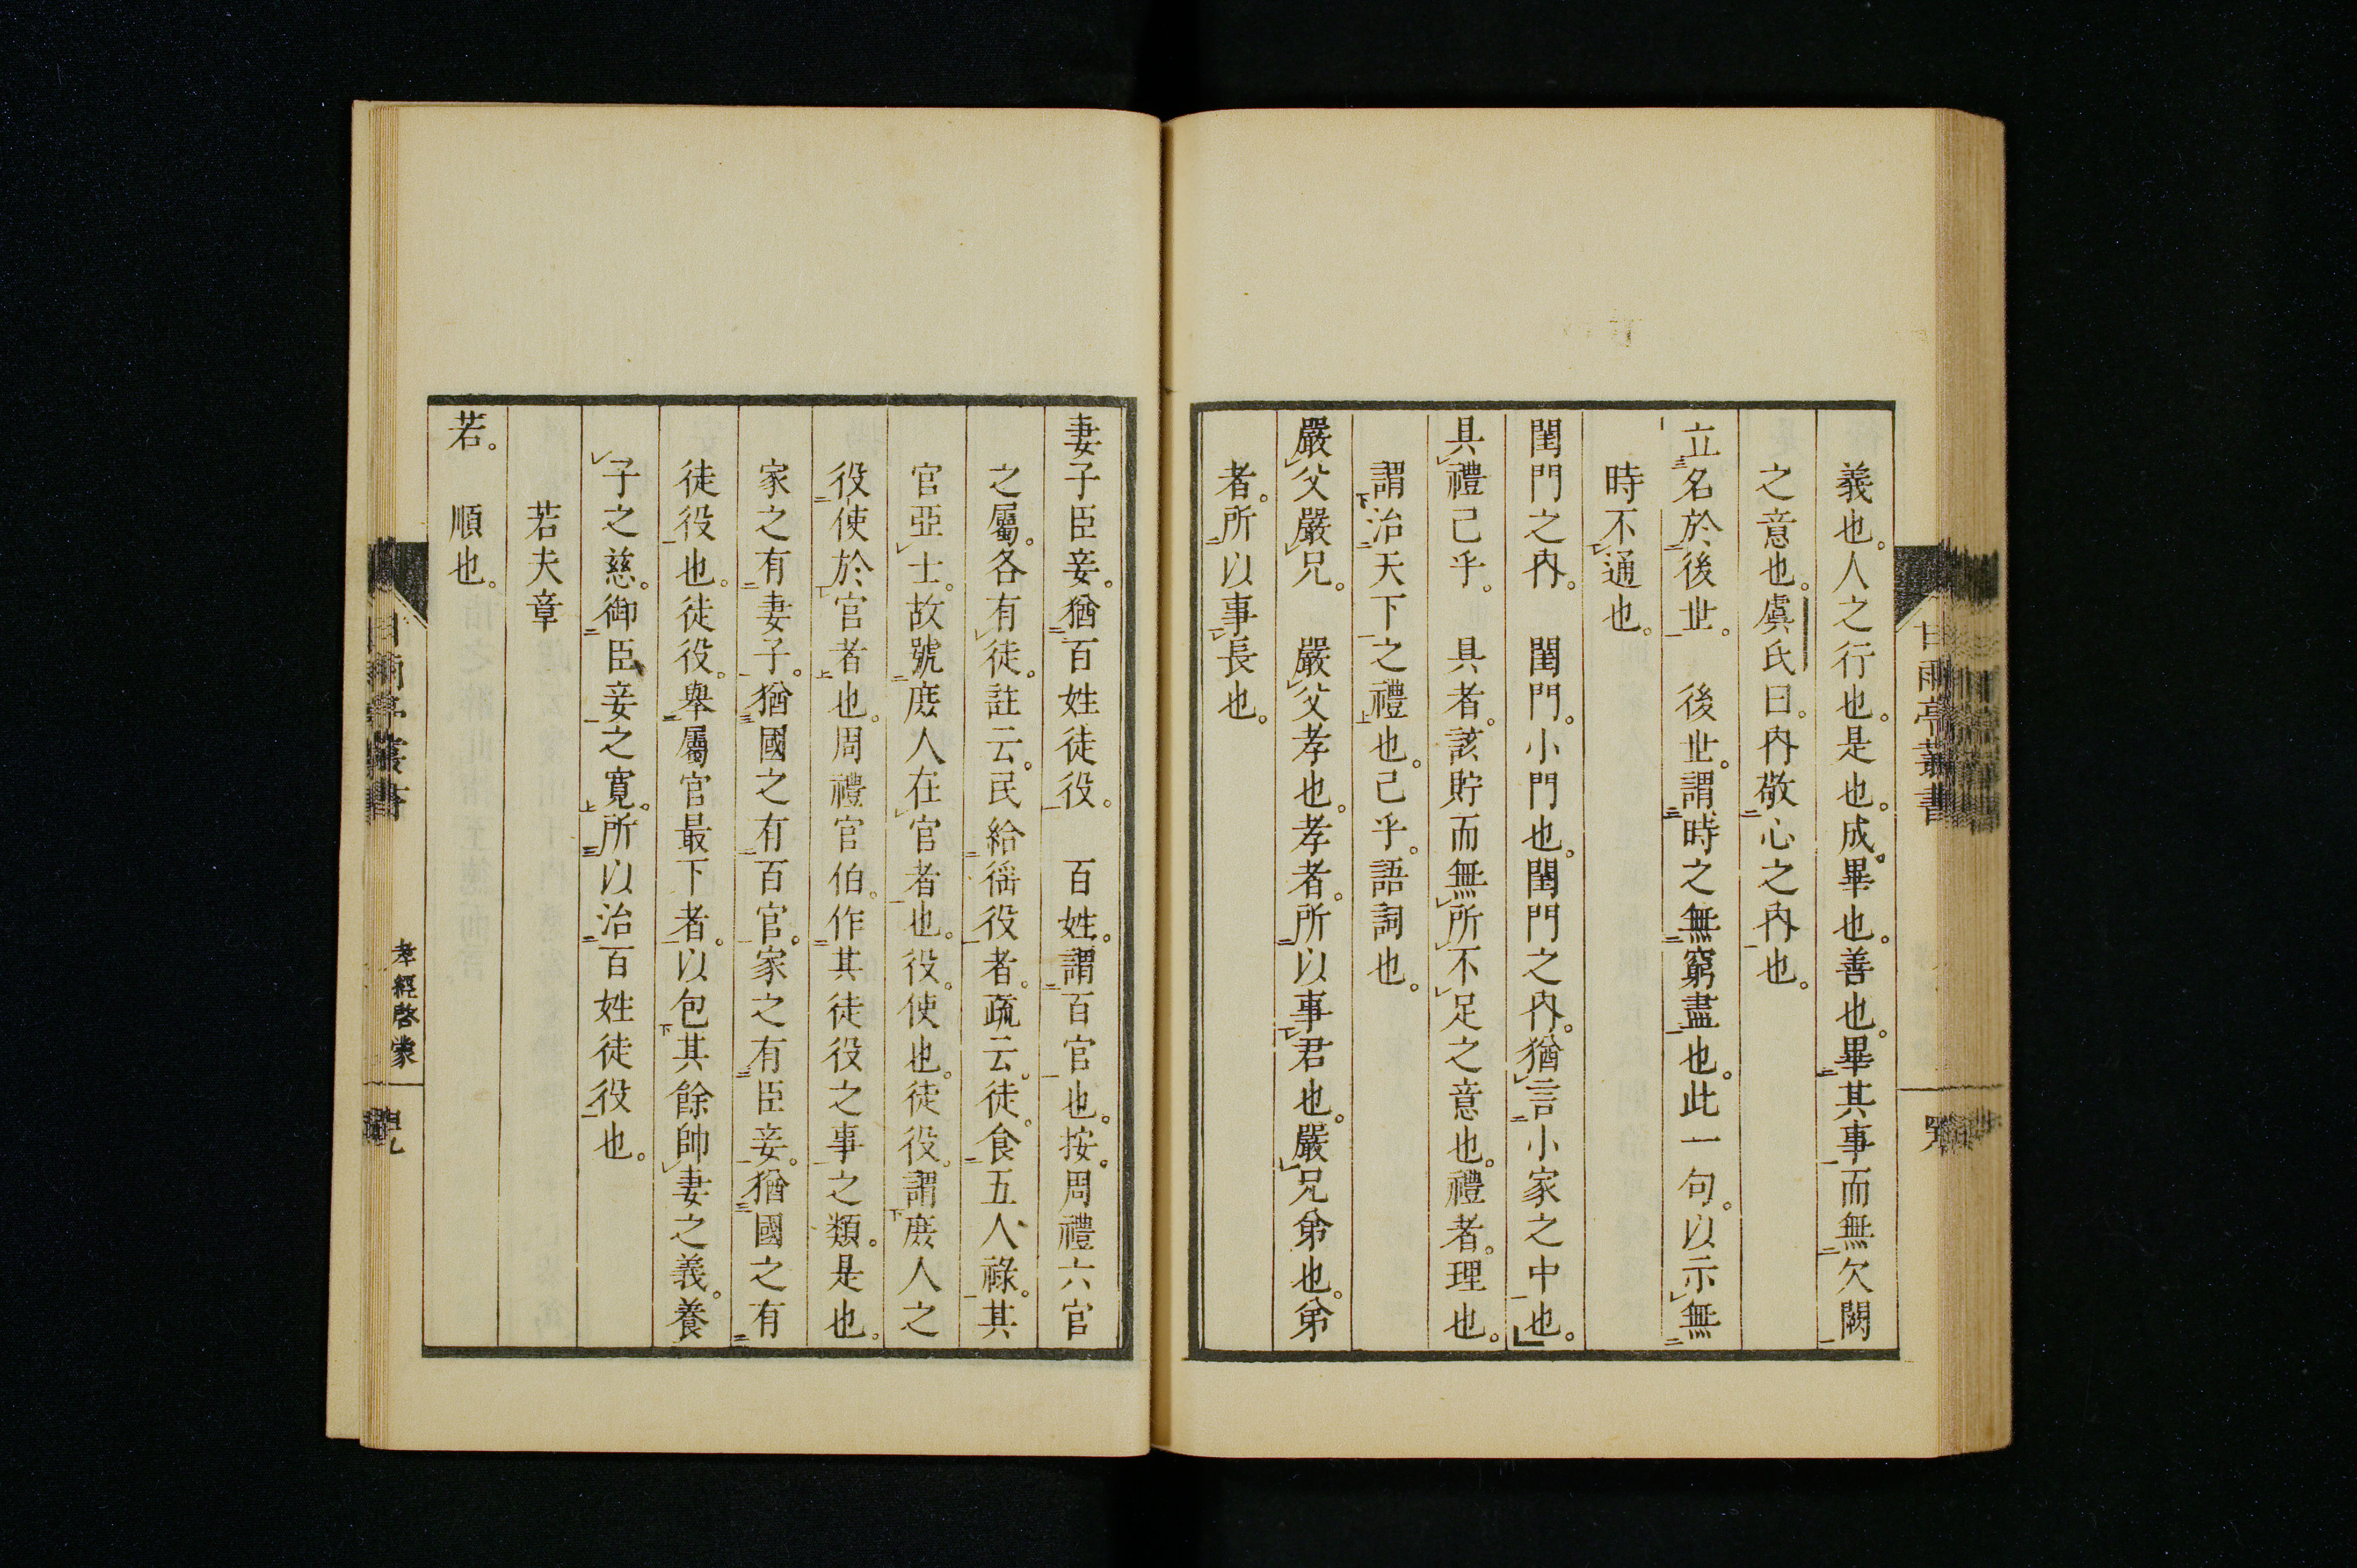 義也。人之行也。是也。成。畢也。善也。畢其事而無欠闕
之意也。虞氏曰。內敬心之內也。
立名於後世。　後世。謂時之無窮盡也。此一句。以示無
時不通也。
閨門之內。　閨門。小門也。閨門之內。猶言小家之中也。
具禮己乎。　具者。該貯而無所不足之意也。禮者。理也。
謂治天下之禮也。己乎。語詞也。
嚴父嚴兄。　嚴父孝也。孝者。所以事君也。嚴兄弟也。弟
者。所以事長也。
甘雨亭叢書
妻子臣妾。猶百姓徒役。　百姓。謂百官也。按。周禮六官
之屬。各有徒。註云。民給徭役者。疏云。徒。食五人祿。其
官亞士。故號庶人在官者也。役。使也。徒役。謂庶人之
役使於官者也。周禮官伯。作其徒役之事之類。是也。
家之有妻子。猶國之有百官。家之有臣妾。猶國之有
徒役也。徒役。舉屬官最下者。以包其餘帥妻之義。養
子之慈。御臣妾之寬。所以治百姓徒役也。
若夫章
若。　順也。
甘雨亭叢書
孝經啓蒙